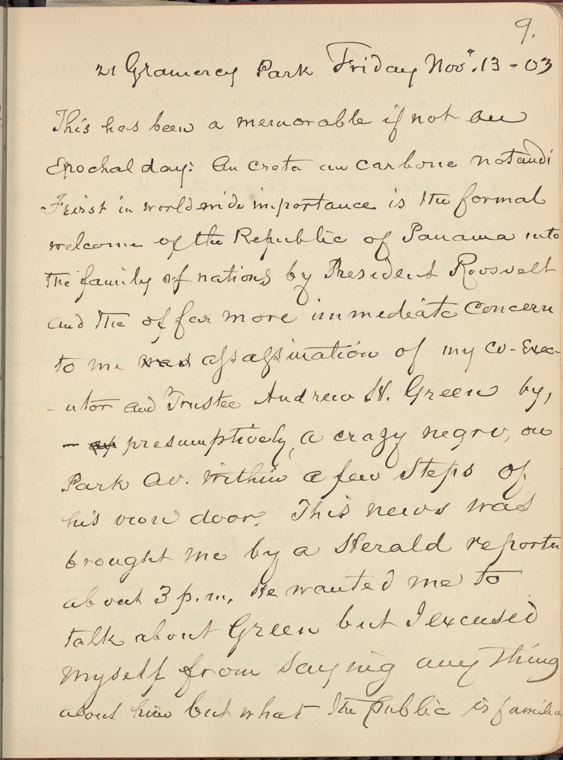 9.
21 Gramercy Park Friday Nov. 13 - 03
This has been a memorable if not an
epochal day: An creta an carbone notandi
First in worldwide importance is the formal
welcome of the Republic of Panama into
the family of nations by President Roosvelt
and the of far more immediate concern
to me was assassination of my co-Exec-
-utor and Trustee Andrew H. Green by,
- presumptively, a crazy negro, on
Park Av. within a few steps of
his own door. This news was
brought me by a Herald reporter
about 3 p.m. He wanted me to
talk about Green but I excused
myself from saying any thing
about him but what the public is familia